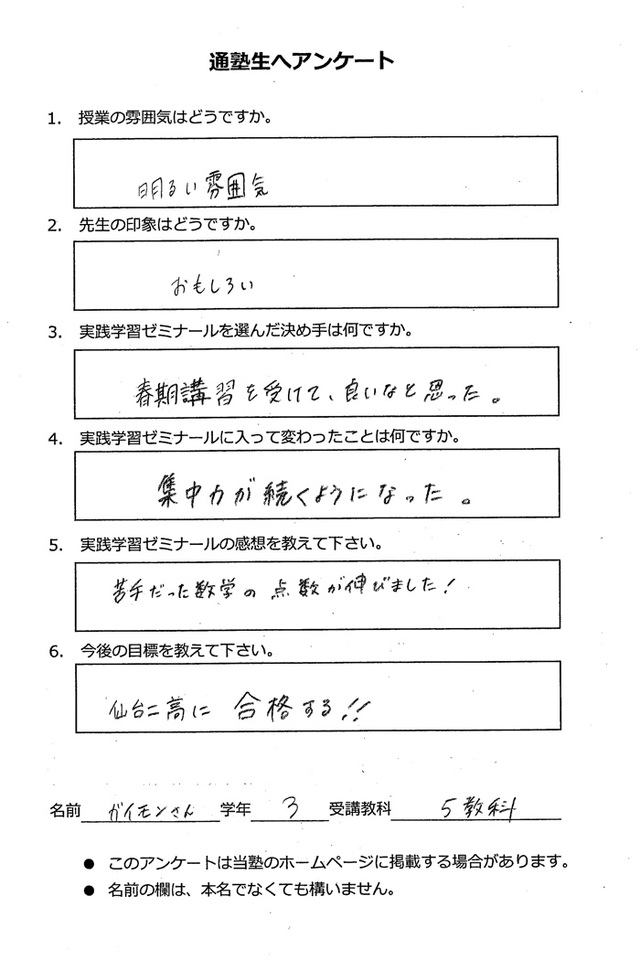 通塾生へアンケート
1. 授業の雰囲気はどうですか。
明るい雰囲気
2. 先生の印象はどうですか。
おもしろい
3. 実践学習ゼミナールを選んだ決め手は何ですか。
春期講習を受けて、良いなと思った。
4. 実践学習ゼミナールに入って変わったことは何ですか。
集中力が続くようになった。
5. 実践学習ゼミナールの感想を教えて下さい。
苦手だった数学の点数が伸びました!
6. 今後の目標を教えて下さい。
仙台二高に合格する!!
名前 ガイモンさん 学年 3 受講教科 5教科
● このアンケートは当塾のホームページに掲載する場合があります。
● 名前の欄は、本名でなくても構いません。